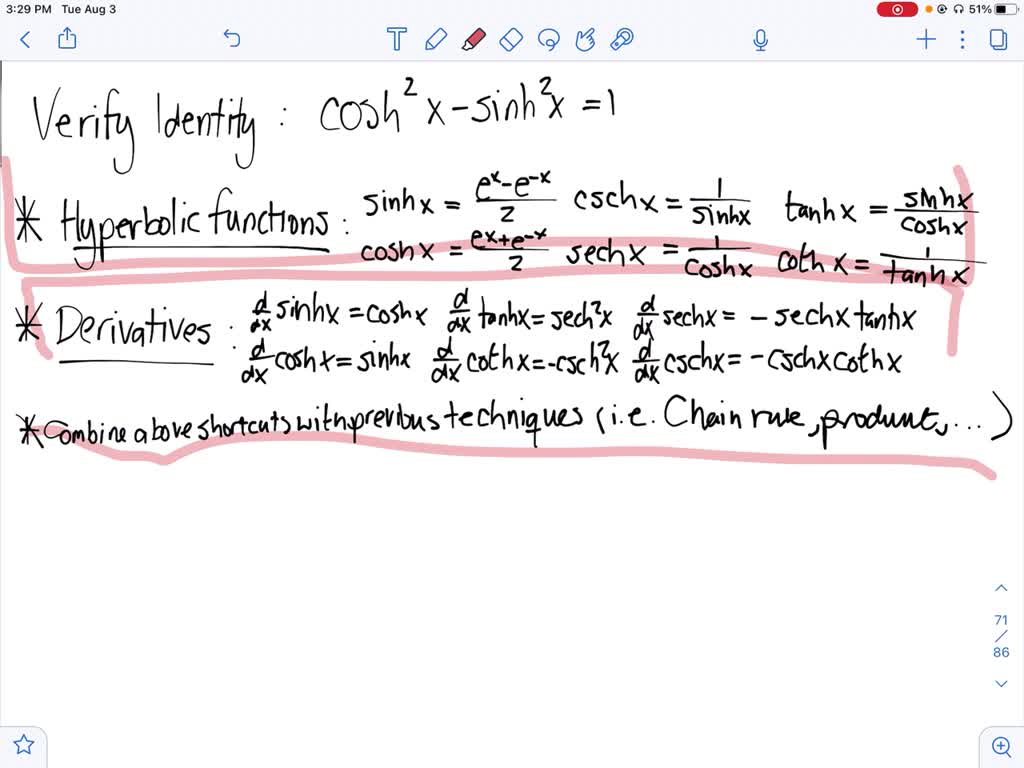 3:29 PM Tue Aug 3 51%
Verify Identity : cosh²x - sinh²x = 1
* Hyperbolic functions : sinhx = (e^x - e^-x)/2 cschx = 1/sinhx tanhx = sinhx/coshx
coshx = (e^x + e^-x)/2 sechx = 1/coshx cothx = 1/tanhx
* Derivatives : d/dx sinhx = coshx d/dx tanhx = sech²x d/dx sechx = - sechx tanhx
d/dx coshx = sinhx d/dx cothx = -csch²x d/dx cschx = -cschx cothx
* Combine above shortcuts with previous techniques (i.e. Chain rule, product, ...)
71
/
86